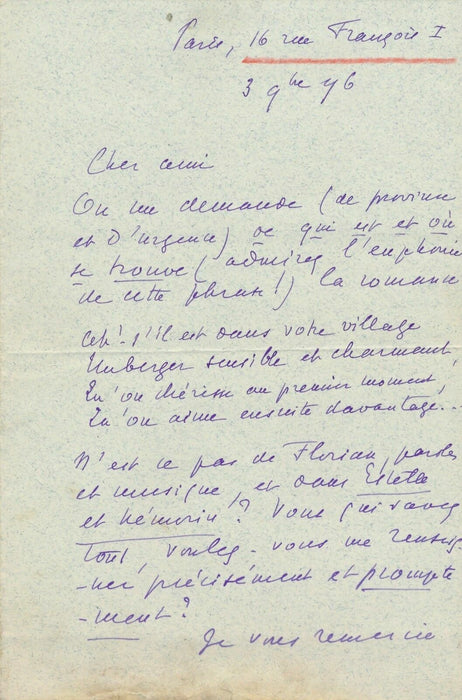 Paris, 16 rue François I
3 9bre 96
Cher ami
On me demande (de province
et d'urgence) ce qui est et où
se trouve (admirez l'euphonie
de cette phrase!) la romance
Ah! s'il est dans votre village
Un berger sensible et charmant,
Qu'on chérisse au premier moment,
Qu'on aime ensuite davantage...
N'est ce pas de Florian, paroles
et musique, et dans Estelle
et Némorin? Vous qui savez
tout, voulez-vous me rensei-
-ner précisément et prompte
-ment?
Je vous remercie